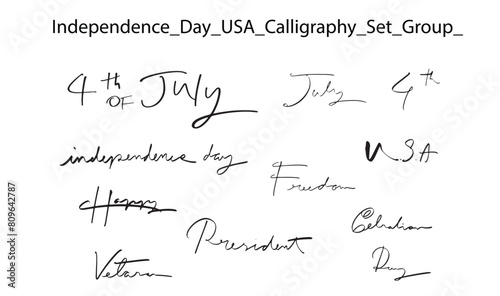 Independence_Day_USA_Calligraphy_Set_Group_
4th OF July
July
4th
independence day
U.S.A
Freedom
Happy
President
Celbration
Day
Vetaran
Adobe Stock | #809642787
Adobe Stock